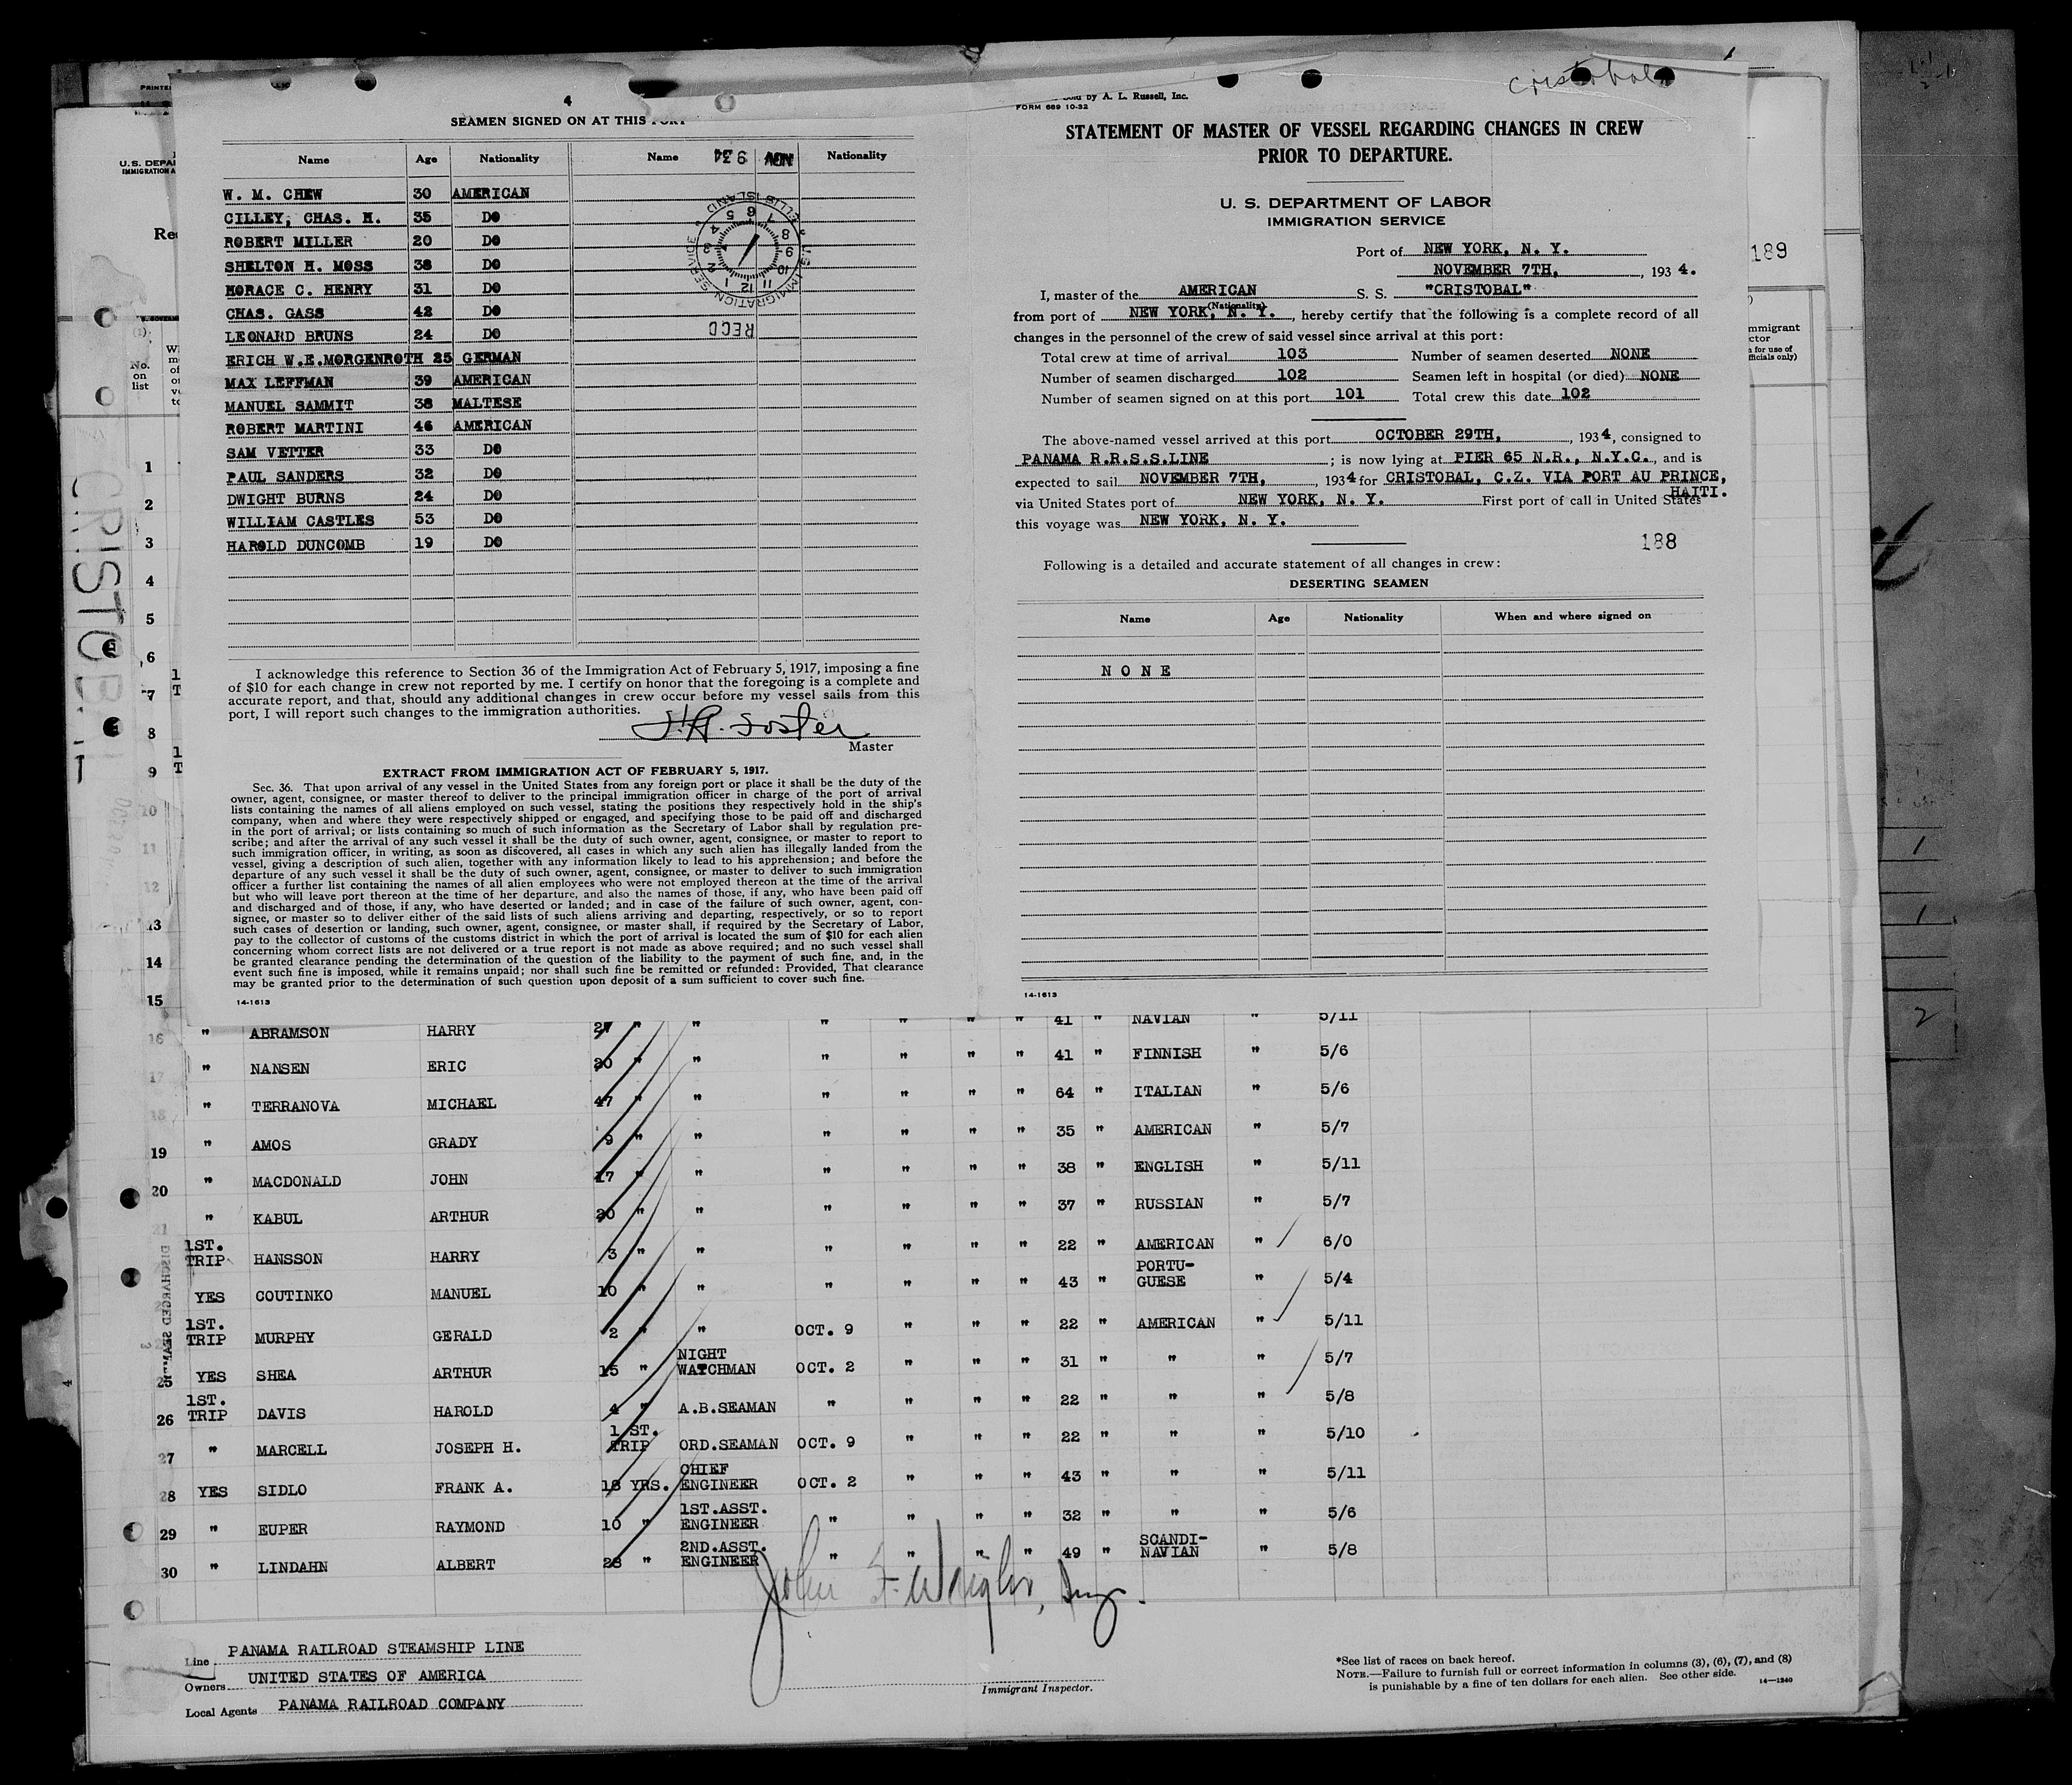 4
SEAMEN SIGNED ON AT THIS PORT
Name Age Nationality Name Nationality
NOV 9 34
W. M. CHEW 30 AMERICAN
CILLEY, CHAS. H. 35 DO
ROBERT MILLER 20 DO
SHELTON H. MOSS 38 DO
HORACE C. HENRY 31 DO
CHAS. GASS 42 DO
LEONARD BRUNS 24 DO
ERICH W.E.MORGENROTH 25 GERMAN
MAX LEFFMAN 39 AMERICAN
MANUEL SAMMIT 38 MALTESE
ROBERT MARTINI 46 AMERICAN
SAM VETTER 33 DO
PAUL SANDERS 32 DO
DWIGHT BURNS 24 DO
WILLIAM CASTLES 53 DO
HAROLD DUNCOMB 19 DO
U.S. IMMIGRATION SERVICE ELLIS ISLAND
1 2 3 4 5 6 7 8 9 10 11 12
RECD
I acknowledge this reference to Section 36 of the Immigration Act of February 5, 1917, imposing a fine
of $10 for each change in crew not reported by me. I certify on honor that the foregoing is a complete and
accurate report, and that, should any additional changes in crew occur before my vessel sails from this
port, I will report such changes to the immigration authorities.
Foster
Master
EXTRACT FROM IMMIGRATION ACT OF FEBRUARY 5, 1917.
Sec. 36. That upon arrival of any vessel in the United States from any foreign port or place it shall be the duty of the
owner, agent, consignee, or master thereof to deliver to the principal immigration officer in charge of the port of arrival
lists containing the names of all aliens employed on such vessel, stating the positions they respectively hold in the ship's
company, when and where they were respectively shipped or engaged, and specifying those to be paid off and discharged
in the port of arrival; or lists containing so much of such information as the Secretary of Labor shall by regulation pre-
scribe; and after the arrival of any such vessel it shall be the duty of such owner, agent, consignee, or master to report to
such immigration officer, in writing, as soon as discovered, all cases in which any such alien has illegally landed from the
vessel, giving a description of such alien, together with any information likely to lead to his apprehension; and before the
departure of any such vessel it shall be the duty of such owner, agent, consignee, or master to deliver to such immigration
officer a further list containing the names of all alien employees who were not employed thereon at the time of the arrival
but who will leave port thereon at the time of her departure, and also the names of those, if any, who have been paid off
and discharged and of those, if any, who have deserted or landed; and in case of the failure of such owner, agent, con-
signee, or master so to deliver either of the said lists of such aliens arriving and departing, respectively, or so to report
such cases of desertion or landing, such owner, agent, consignee, or master shall, if required by the Secretary of Labor,
pay to the collector of customs of the customs district in which the port of arrival is located the sum of $10 for each alien
concerning whom correct lists are not delivered or a true report is not made as above required; and no such vessel shall
be granted clearance pending the determination of the question of the liability to the payment of such fine, and, in the
event such fine is imposed, while it remains unpaid; nor shall such fine be remitted or refunded: Provided, That clearance
may be granted prior to the determination of such question upon deposit of a sum sufficient to cover such fine.
14-1613
Cristobal
by A. L. Russell, Inc.
FORM 689 10-32
STATEMENT OF MASTER OF VESSEL REGARDING CHANGES IN CREW
PRIOR TO DEPARTURE.
U. S. DEPARTMENT OF LABOR
IMMIGRATION SERVICE
Port of NEW YORK, N. Y.
NOVEMBER 7TH, , 1934.
I, master of the AMERICAN S. S. "CRISTOBAL"
(Nationality)
from port of NEW YORK, N. Y. , hereby certify that the following is a complete record of all
changes in the personnel of the crew of said vessel since arrival at this port:
Total crew at time of arrival 103 Number of seamen deserted NONE
Number of seamen discharged 102 Seamen left in hospital (or died) NONE
Number of seamen signed on at this port 101 Total crew this date 102
The above-named vessel arrived at this port OCTOBER 29TH, , 1934, consigned to
PANAMA R.R.S.S.LINE ; is now lying at PIER 65 N.R., N.Y.C. , and is
expected to sail NOVEMBER 7TH, , 1934 for CRISTOBAL, C.Z. VIA PORT AU PRINCE,
HAITI.
via United States port of NEW YORK, N. Y. First port of call in United States
this voyage was NEW YORK, N. Y.
188
Following is a detailed and accurate statement of all changes in crew:
DESERTING SEAMEN
Name Age Nationality When and where signed on
N O N E
14-1613
189
U.S. DEPA
IMMIGRATION
No.
on
list
CRISTOB
1
2
3
4
5
6
7
8
9
10
11
12
13
14
15
16 " ABRAMSON HARRY 27 " " " " " 41 " NAVIAN " 5/11
17 " NANSEN ERIC 20 " " " " " 41 " FINNISH " 5/6
18 " TERRANOVA MICHAEL 47 " " " " " 64 " ITALIAN " 5/6
19 " AMOS GRADY 9 " " " " " 35 " AMERICAN " 5/7
20 " MACDONALD JOHN 17 " " " " " 38 " ENGLISH " 5/11
21 " KABUL ARTHUR 20 " " " " " 37 " RUSSIAN " 5/7
1ST. TRIP HANSSON HARRY 3 " " " " " 22 " AMERICAN " 6/0
YES COUTINKO MANUEL 10 " " " " " 43 " PORTU-GUESE " 5/4
1ST. TRIP MURPHY GERALD 2 " " OCT. 9 " " 22 " AMERICAN " 5/11
25 YES SHEA ARTHUR 15 " NIGHT WATCHMAN OCT. 2 " " 31 " " " 5/7
26 1ST. TRIP DAVIS HAROLD 4 " A.B.SEAMAN " " " 22 " " " 5/8
27 " MARCELL JOSEPH H. 1 ST. TRIP ORD.SEAMAN OCT. 9 " " 22 " " " 5/10
28 YES SIDLO FRANK A. 18 YRS. CHIEF ENGINEER OCT. 2 " " 43 " " " 5/11
29 " EUPER RAYMOND 10 " 1ST.ASST. ENGINEER " " " 32 " " " 5/6
30 " LINDAHN ALBERT 28 " 2ND.ASST. ENGINEER " " " 49 " SCANDI-NAVIAN " 5/8
John F. Wright, Insp.
Immigrant Inspector.
Line PANAMA RAILROAD STEAMSHIP LINE
Owners UNITED STATES OF AMERICA
Local Agents PANAMA RAILROAD COMPANY
*See list of races on back hereof.
NOTE.—Failure to furnish full or correct information in columns (3), (6), (7), and (8)
is punishable by a fine of ten dollars for each alien. See other side.
14—1240